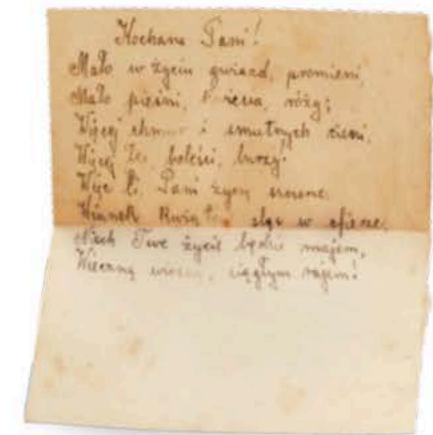 Kochana Pani!
Mało w życiu gwiazd, promieni,
Mało pieśni, róży;
Więcej chmur i smutnych cieni,
Więcej łez, boleści, burzy!
Więc Pani życzę szczerze,
Wianek kwiatów w ofierze,
Niech Twe życie będzie majem,
Wieczną wiosną, ciągłym rajem!